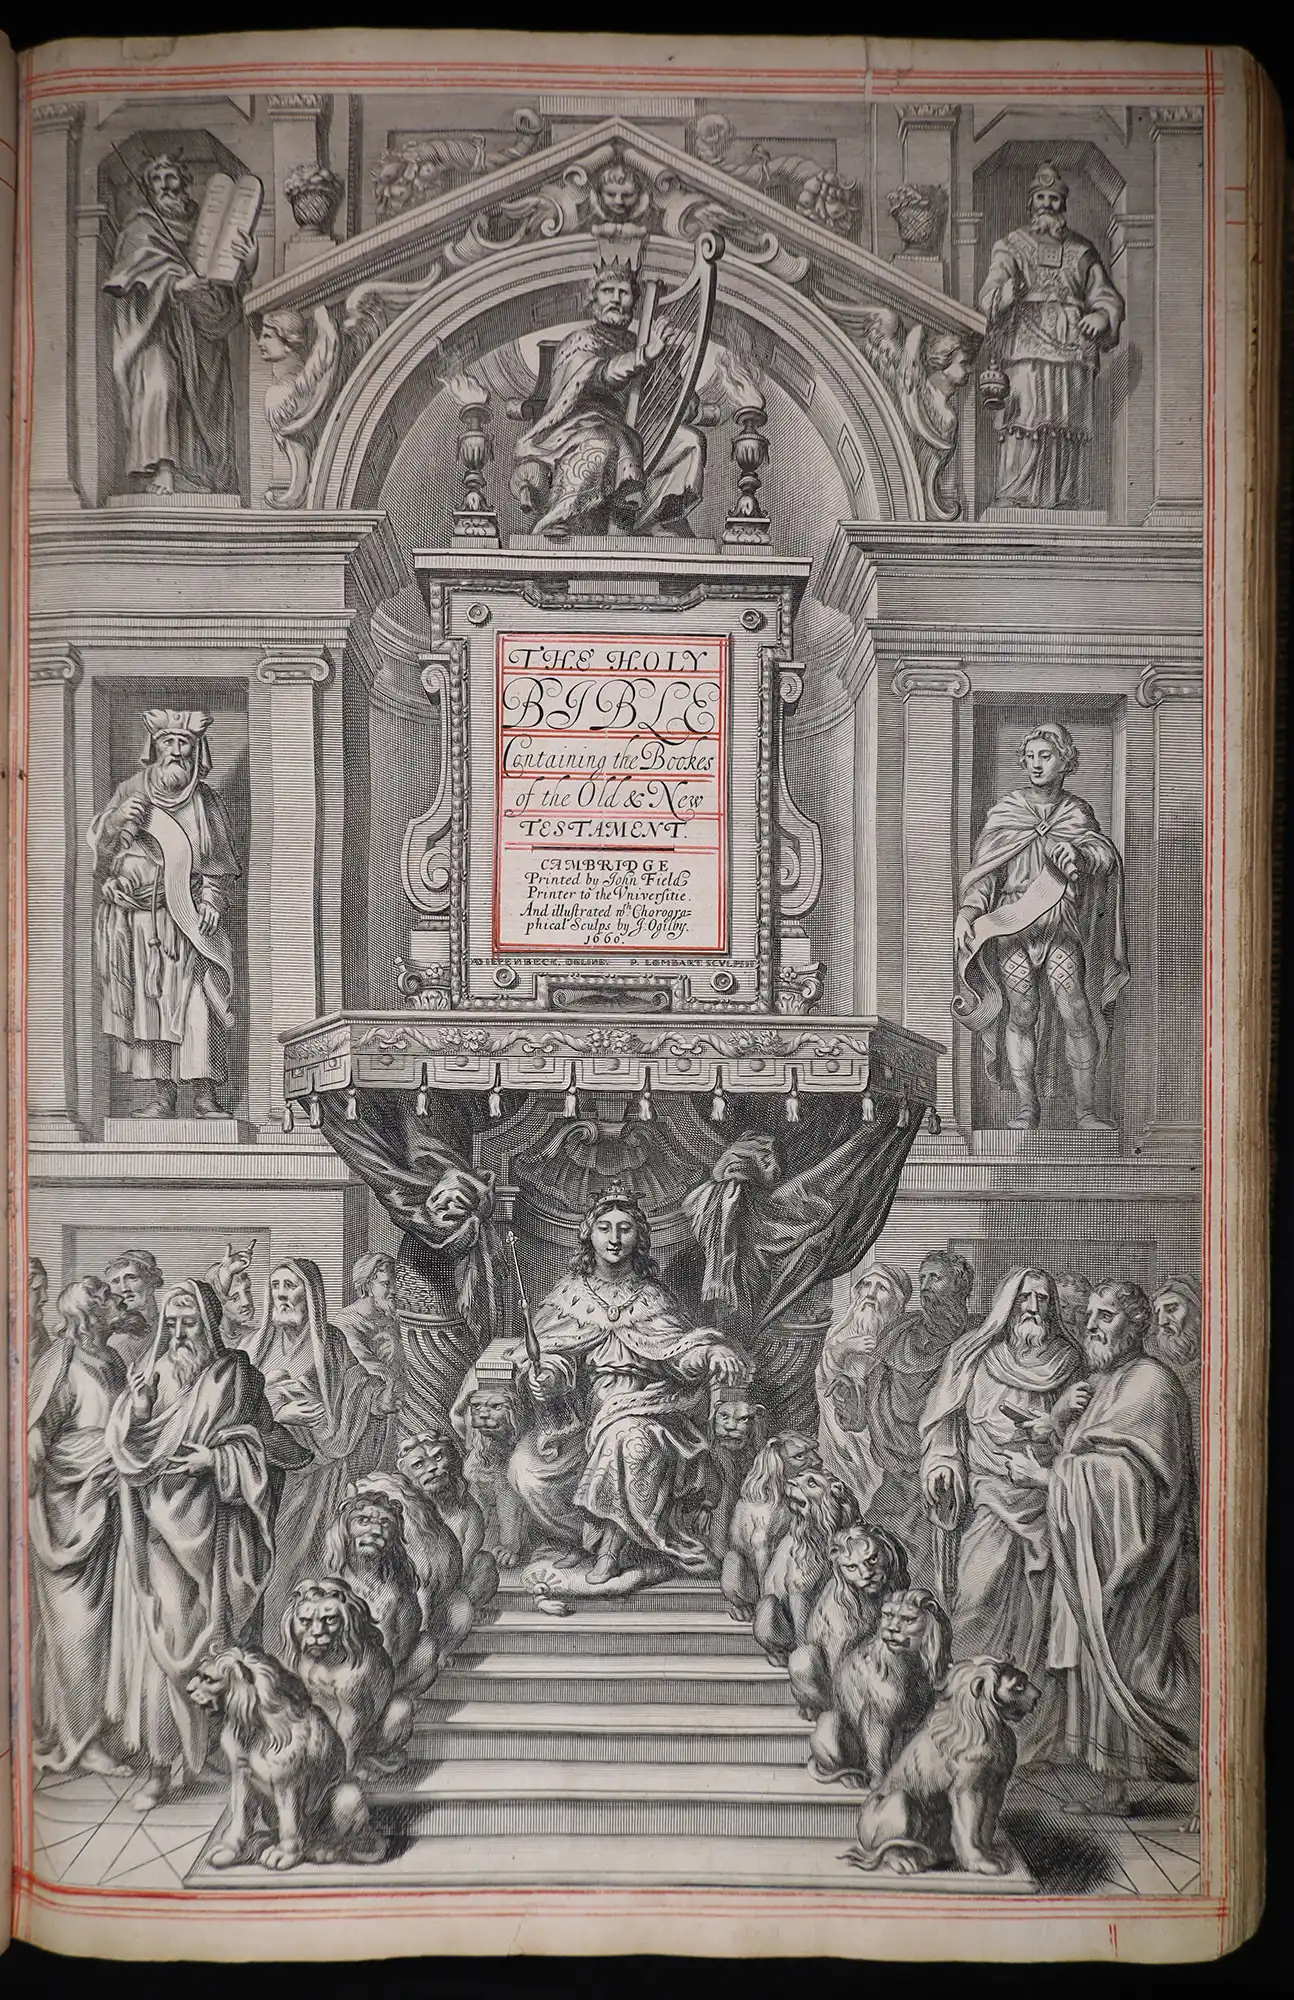 THE HOLY
BIBLE
Containing the Bookes
of the Old & New
TESTAMENT.
CAMBRIDGE
Printed by John Field
Printer to the Vniversitie.
And illustrated wth. Chorogra-
phical Sculps by J. Ogilby.
1660.
DIEPENBECK. DELINE. P. LOMBART SCVLPSIT